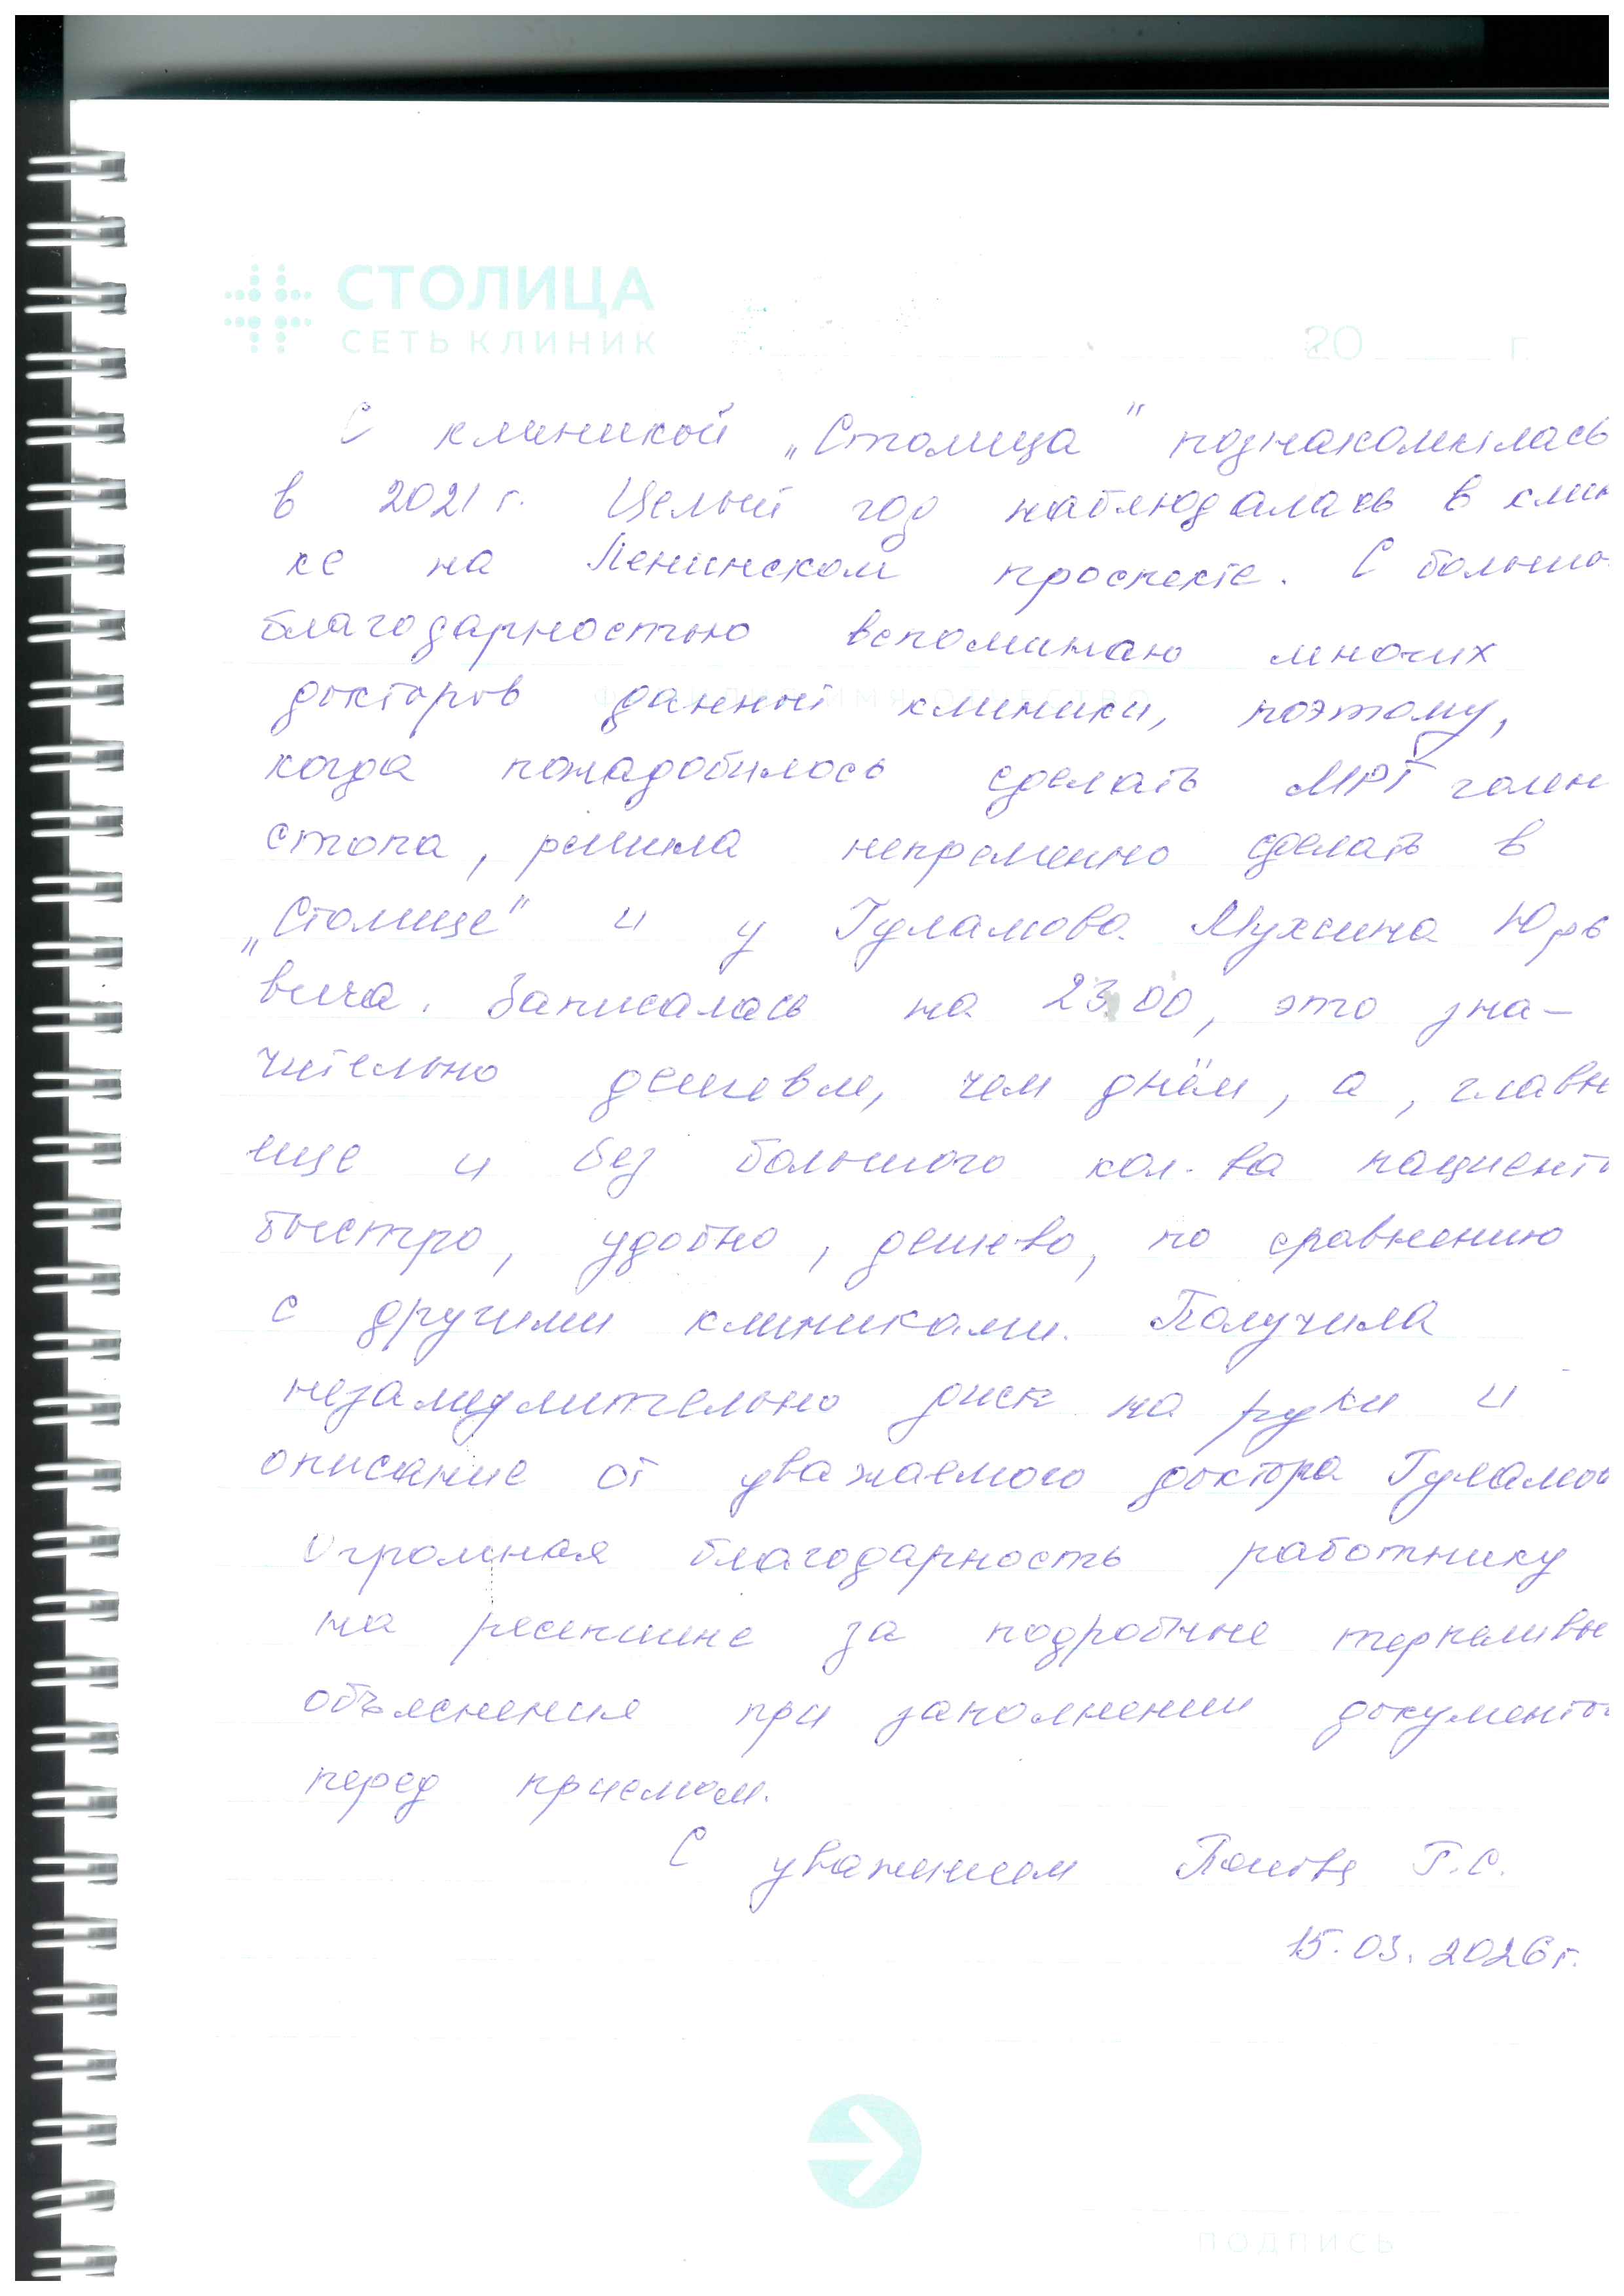 СТОЛИЦА
СЕТЬ КЛИНИК
20 г.
С клиникой „Столица" познакомилась
в 2021 г. Целый год наблюдалась в клин
ке на Ленинском проспекте. С большо
благодарностью вспоминаю многих
докторов данной клиники, поэтому,
когда понадобилось сделать МРТ голен
стопа, решила непременно сделать в
„Столице" и у Гуламова Мухсина Юрь
вича. Записалась на 23.00, это зна-
чительно дешевле, чем днём, а, главн
еще и без большого кол-ва пациенто
быстро, удобно, дешево, по сравнению
с другими клиниками. Получила
незамедлительно диск на руки и
описание от уважаемого доктора Гуламов
Огромная благодарность работнику
на ресепшене за подробные терпеливые
объяснения при заполнении документов
перед приемом.
С уважением Г.С.
15.03.2026 г.
ПОДПИСЬ